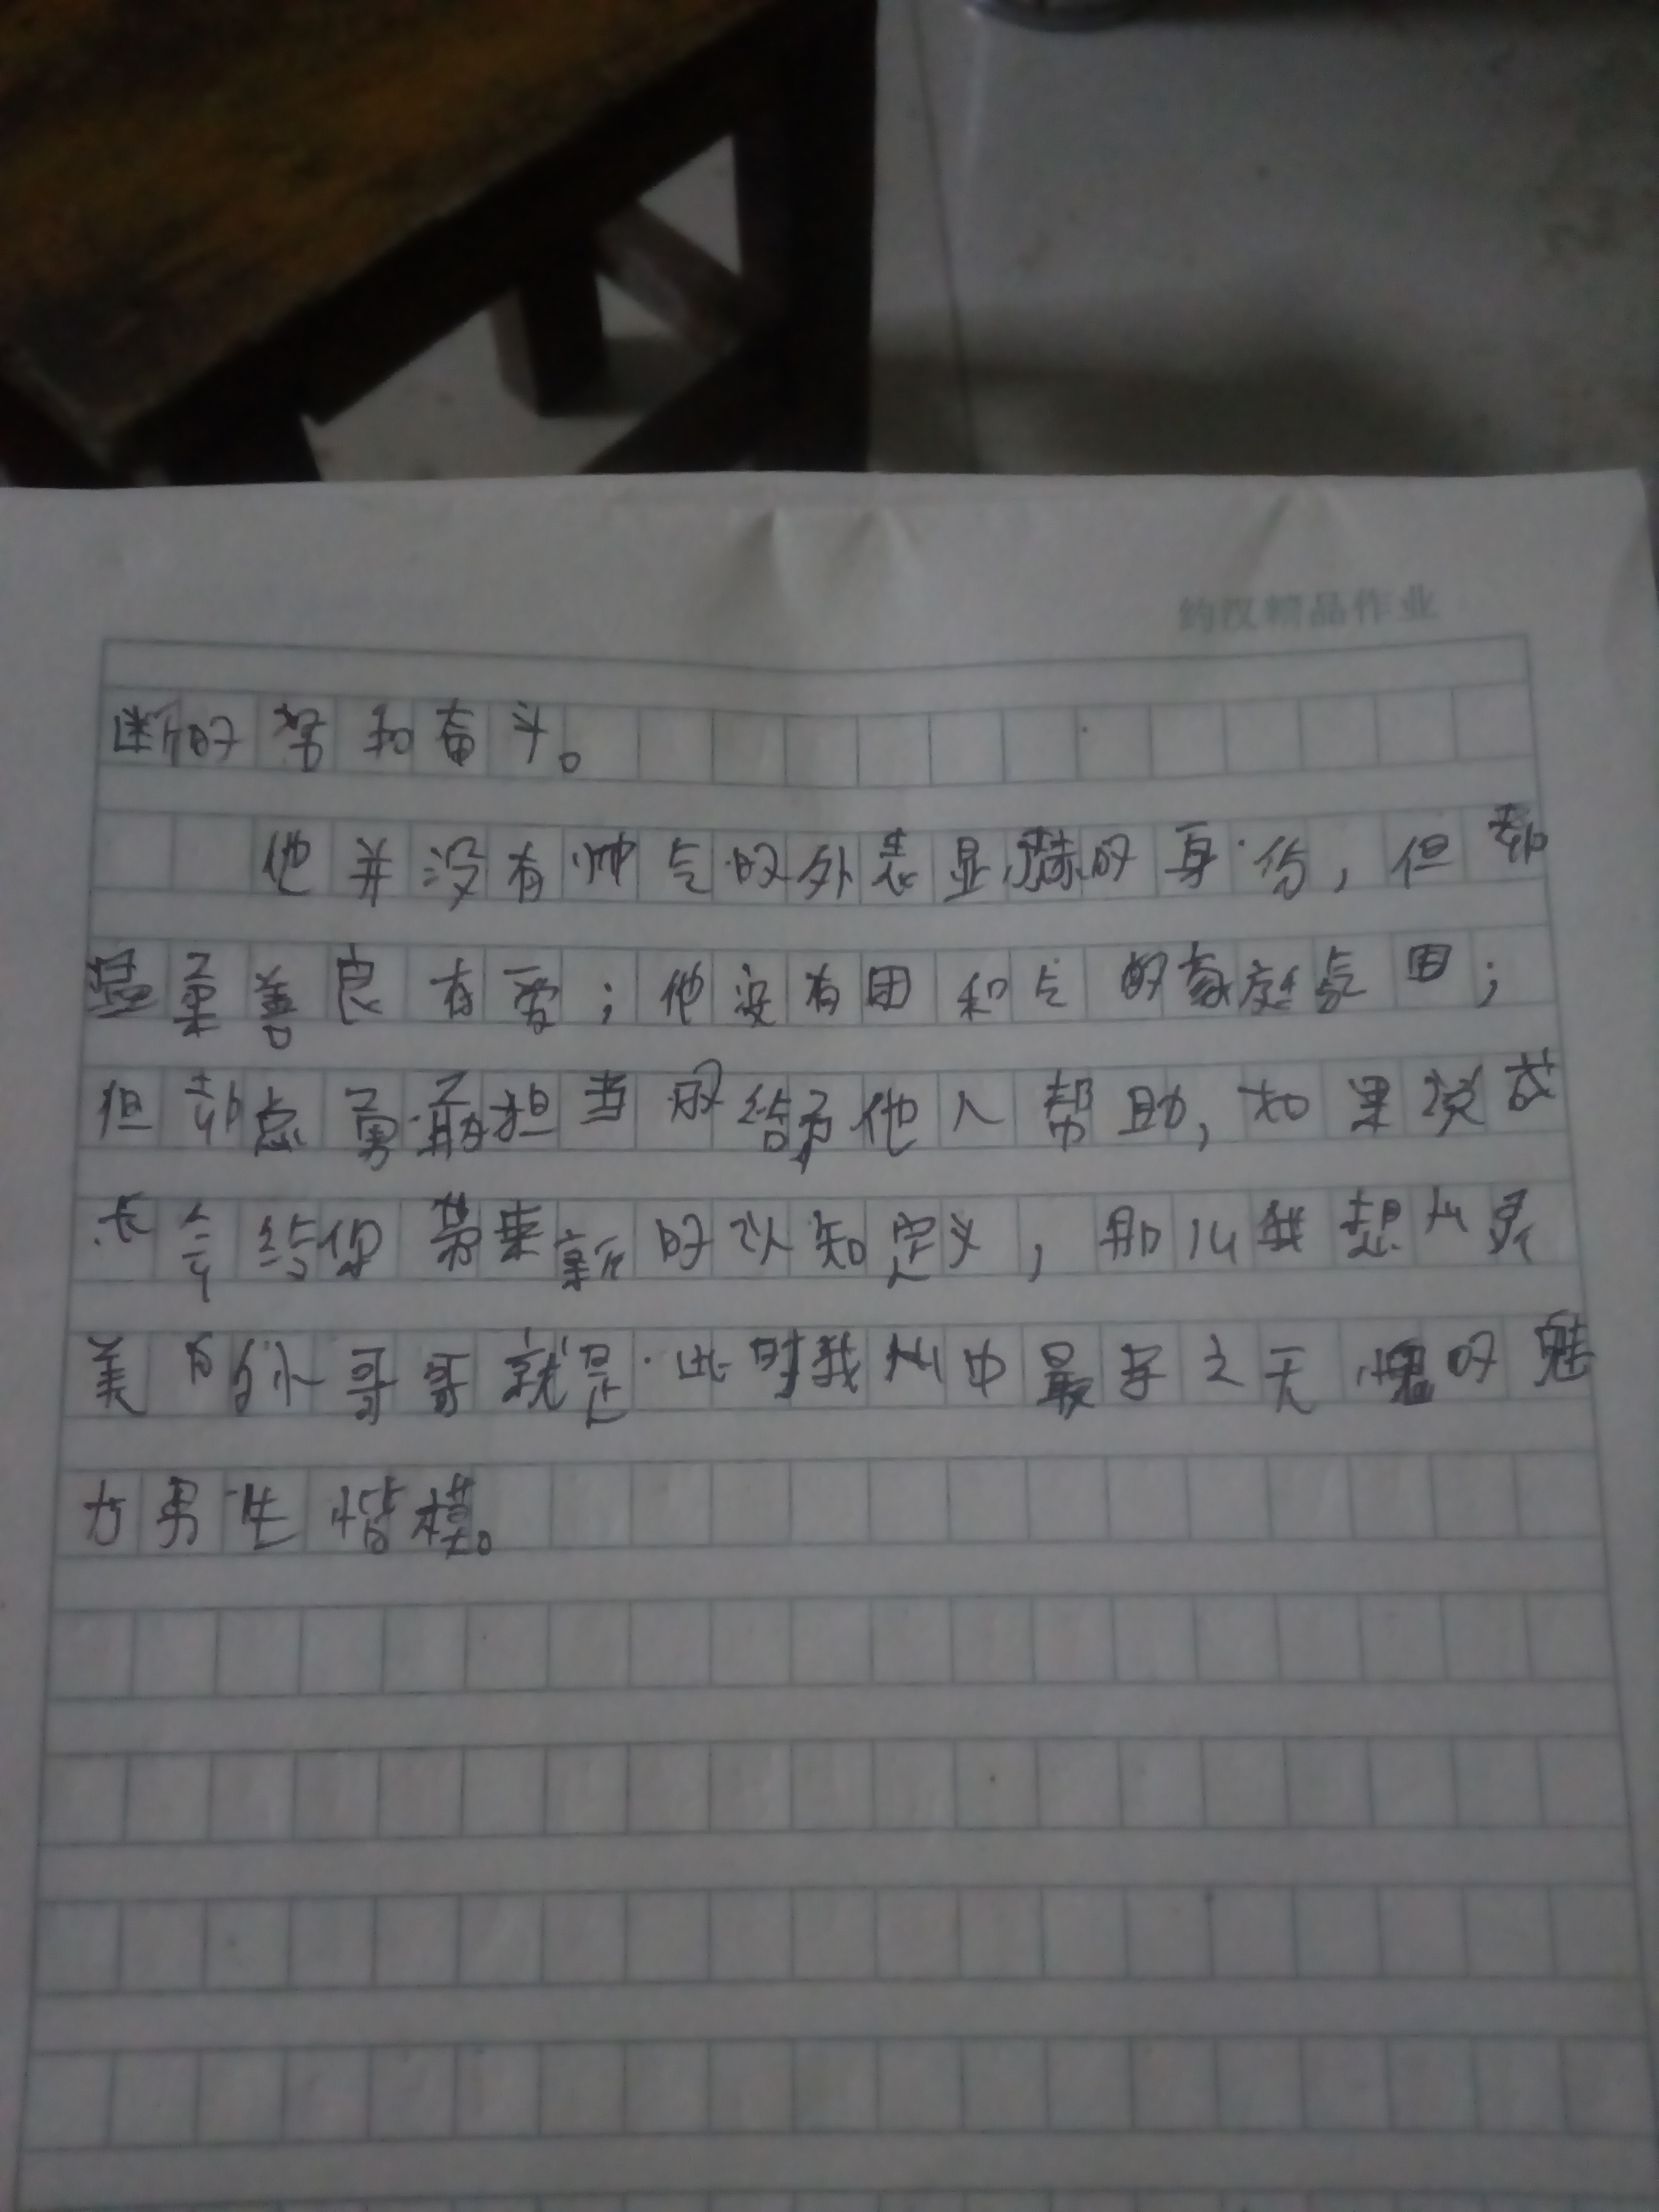 约汉精品作业
断的努和奋斗。
他并没有帅气的外表显赫的身份，但却
温柔善良有爱；他没有团和气的家庭氛围；
但却总勇敢担当给予他人帮助，如果说成
长会给你带来新的认知定义，那么我想心灵
美的小哥哥就是此时我心中最当之无愧的魅
力男性楷模。